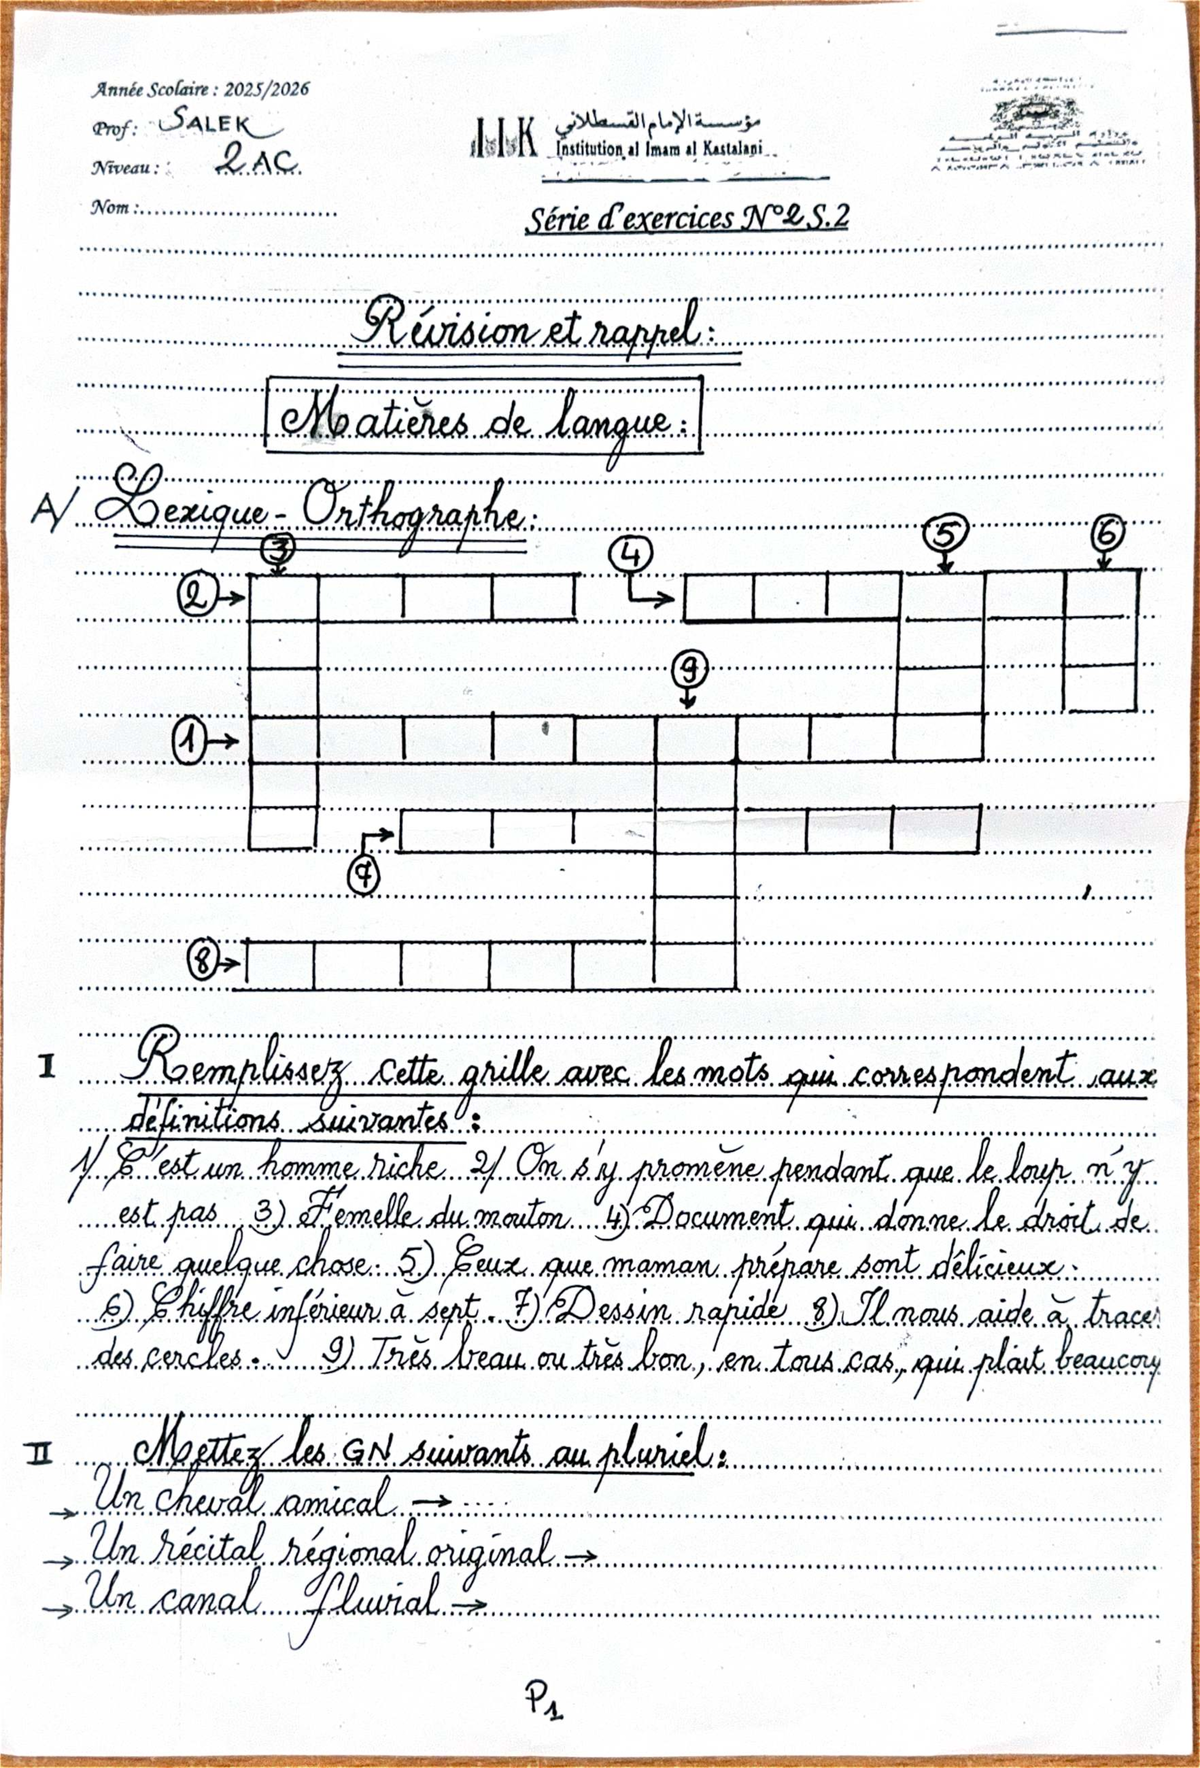 Année Scolaire : 2025/2026
Prof : SALEK
Niveau : 2AC.
Nom :
IIK مؤسسة الإمام القسطلاني
Institution al Imam al Kastalani
Série d'exercices N°2 S.2
Révision et rappel :
Matières de langue :
A/ Lexique - Orthographe :
3 4 5 6
2
9
1
7
8
I Remplissez cette grille avec les mots qui correspondent aux
définitions suivantes :
1/ C'est un homme riche 2/ On s'y promène pendant que le loup n'y
est pas 3) Femelle du mouton 4) Document qui donne le droit de
faire quelque chose. 5) Ceux que maman prépare sont délicieux.
6) Chiffre inférieur à sept. 7) Dessin rapide 8) Il nous aide à tracer
des cercles. 9) Très beau ou très bon, en tous cas, qui plait beaucoup
II Mettez les GN suivants au pluriel :
→ Un cheval amical → ....
→ Un récital régional original →
→ Un canal fluvial →
P1